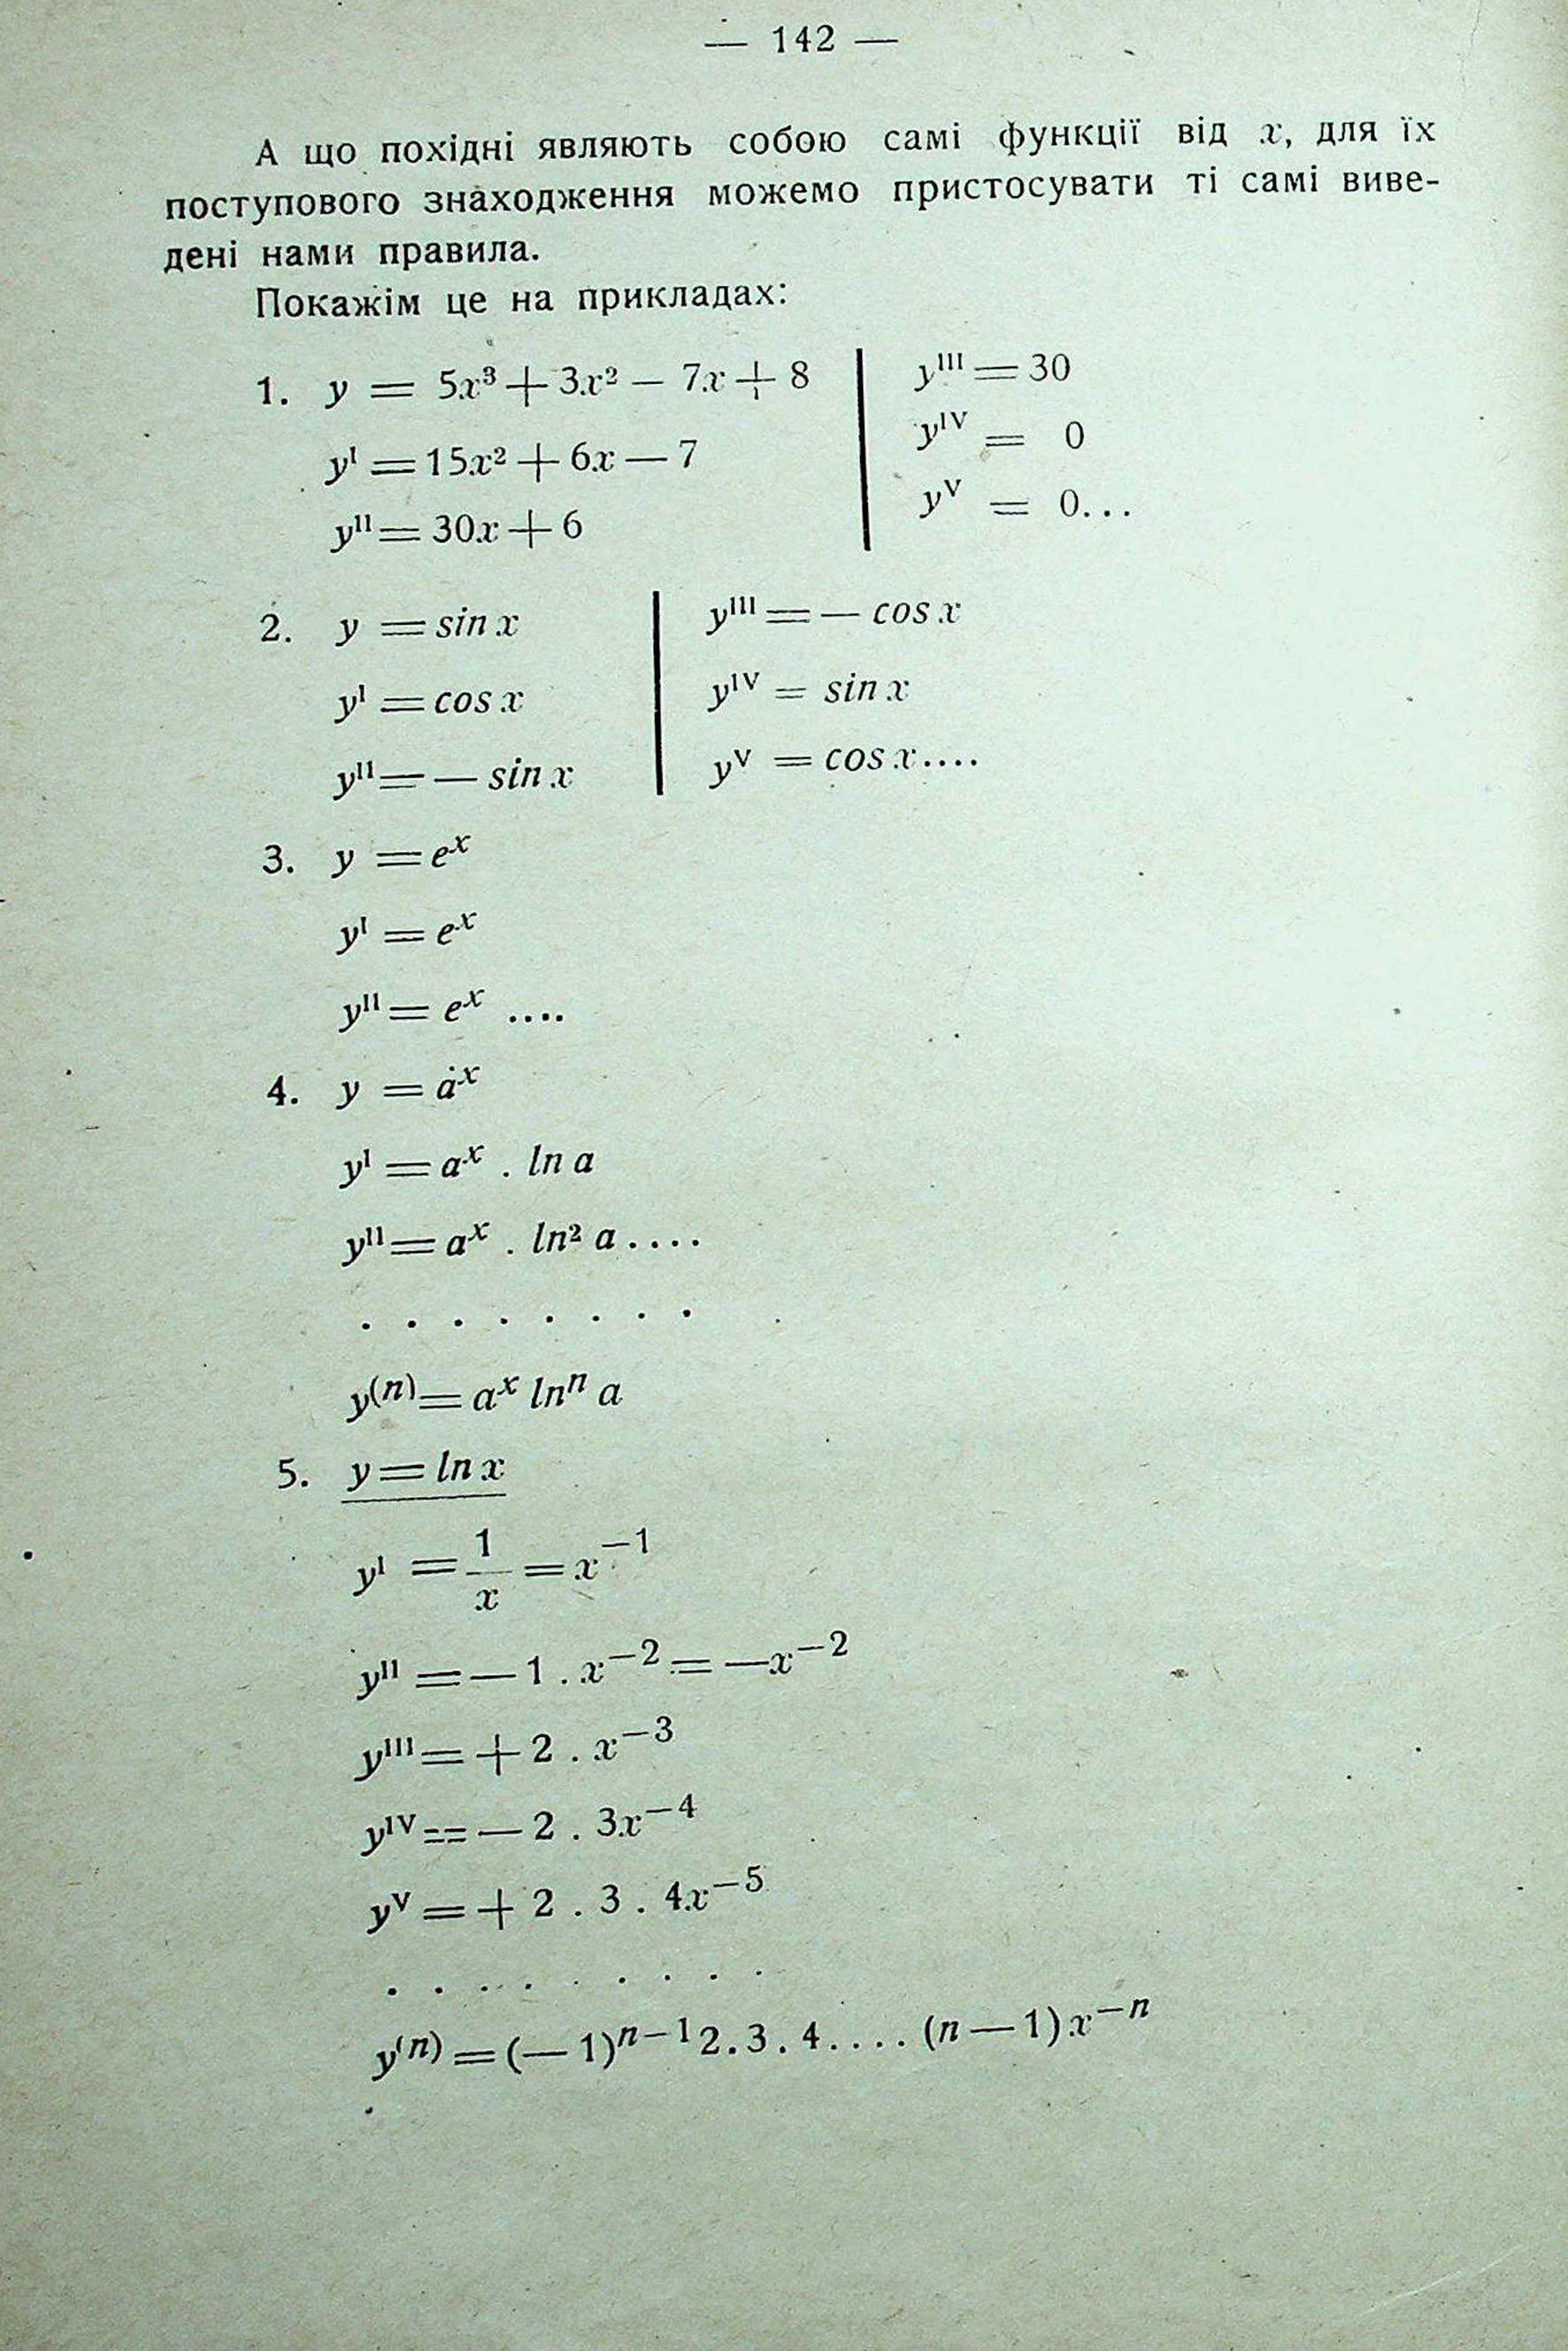 — 142 —
А що похідні являють собою самі функції від x, для їх
поступового знаходження можемо пристосувати ті самі виве-
дені нами правила.
Покажім це на прикладах:
1. y = 5x³ + 3x² — 7x + 8
yᴵ = 15x² + 6x — 7
yᴵᴵ = 30x + 6
yᴵᴵᴵ = 30
yᴵⱽ = 0
yⱽ = 0...
2. y = sin x
yᴵ = cos x
yᴵᴵ = — sin x
yᴵᴵᴵ = — cos x
yᴵⱽ = sin x
yⱽ = cos x....
3. y = eˣ
yᴵ = eˣ
yᴵᴵ = eˣ ....
4. y = aˣ
yᴵ = aˣ . ln a
yᴵᴵ = aˣ . ln² a ....
. . . . . . . .
y⁽ⁿ⁾ = aˣ lnⁿ a
5. y = ln x
yᴵ = 1/x = x⁻¹
yᴵᴵ = — 1 . x⁻² = —x⁻²
yᴵᴵᴵ = + 2 . x⁻³
yᴵⱽ = — 2 . 3x⁻⁴
yⱽ = + 2 . 3 . 4x⁻⁵
. . . . . . . . .
y⁽ⁿ⁾ = (— 1)ⁿ⁻¹ 2 . 3 . 4 .... (n — 1) x⁻ⁿ